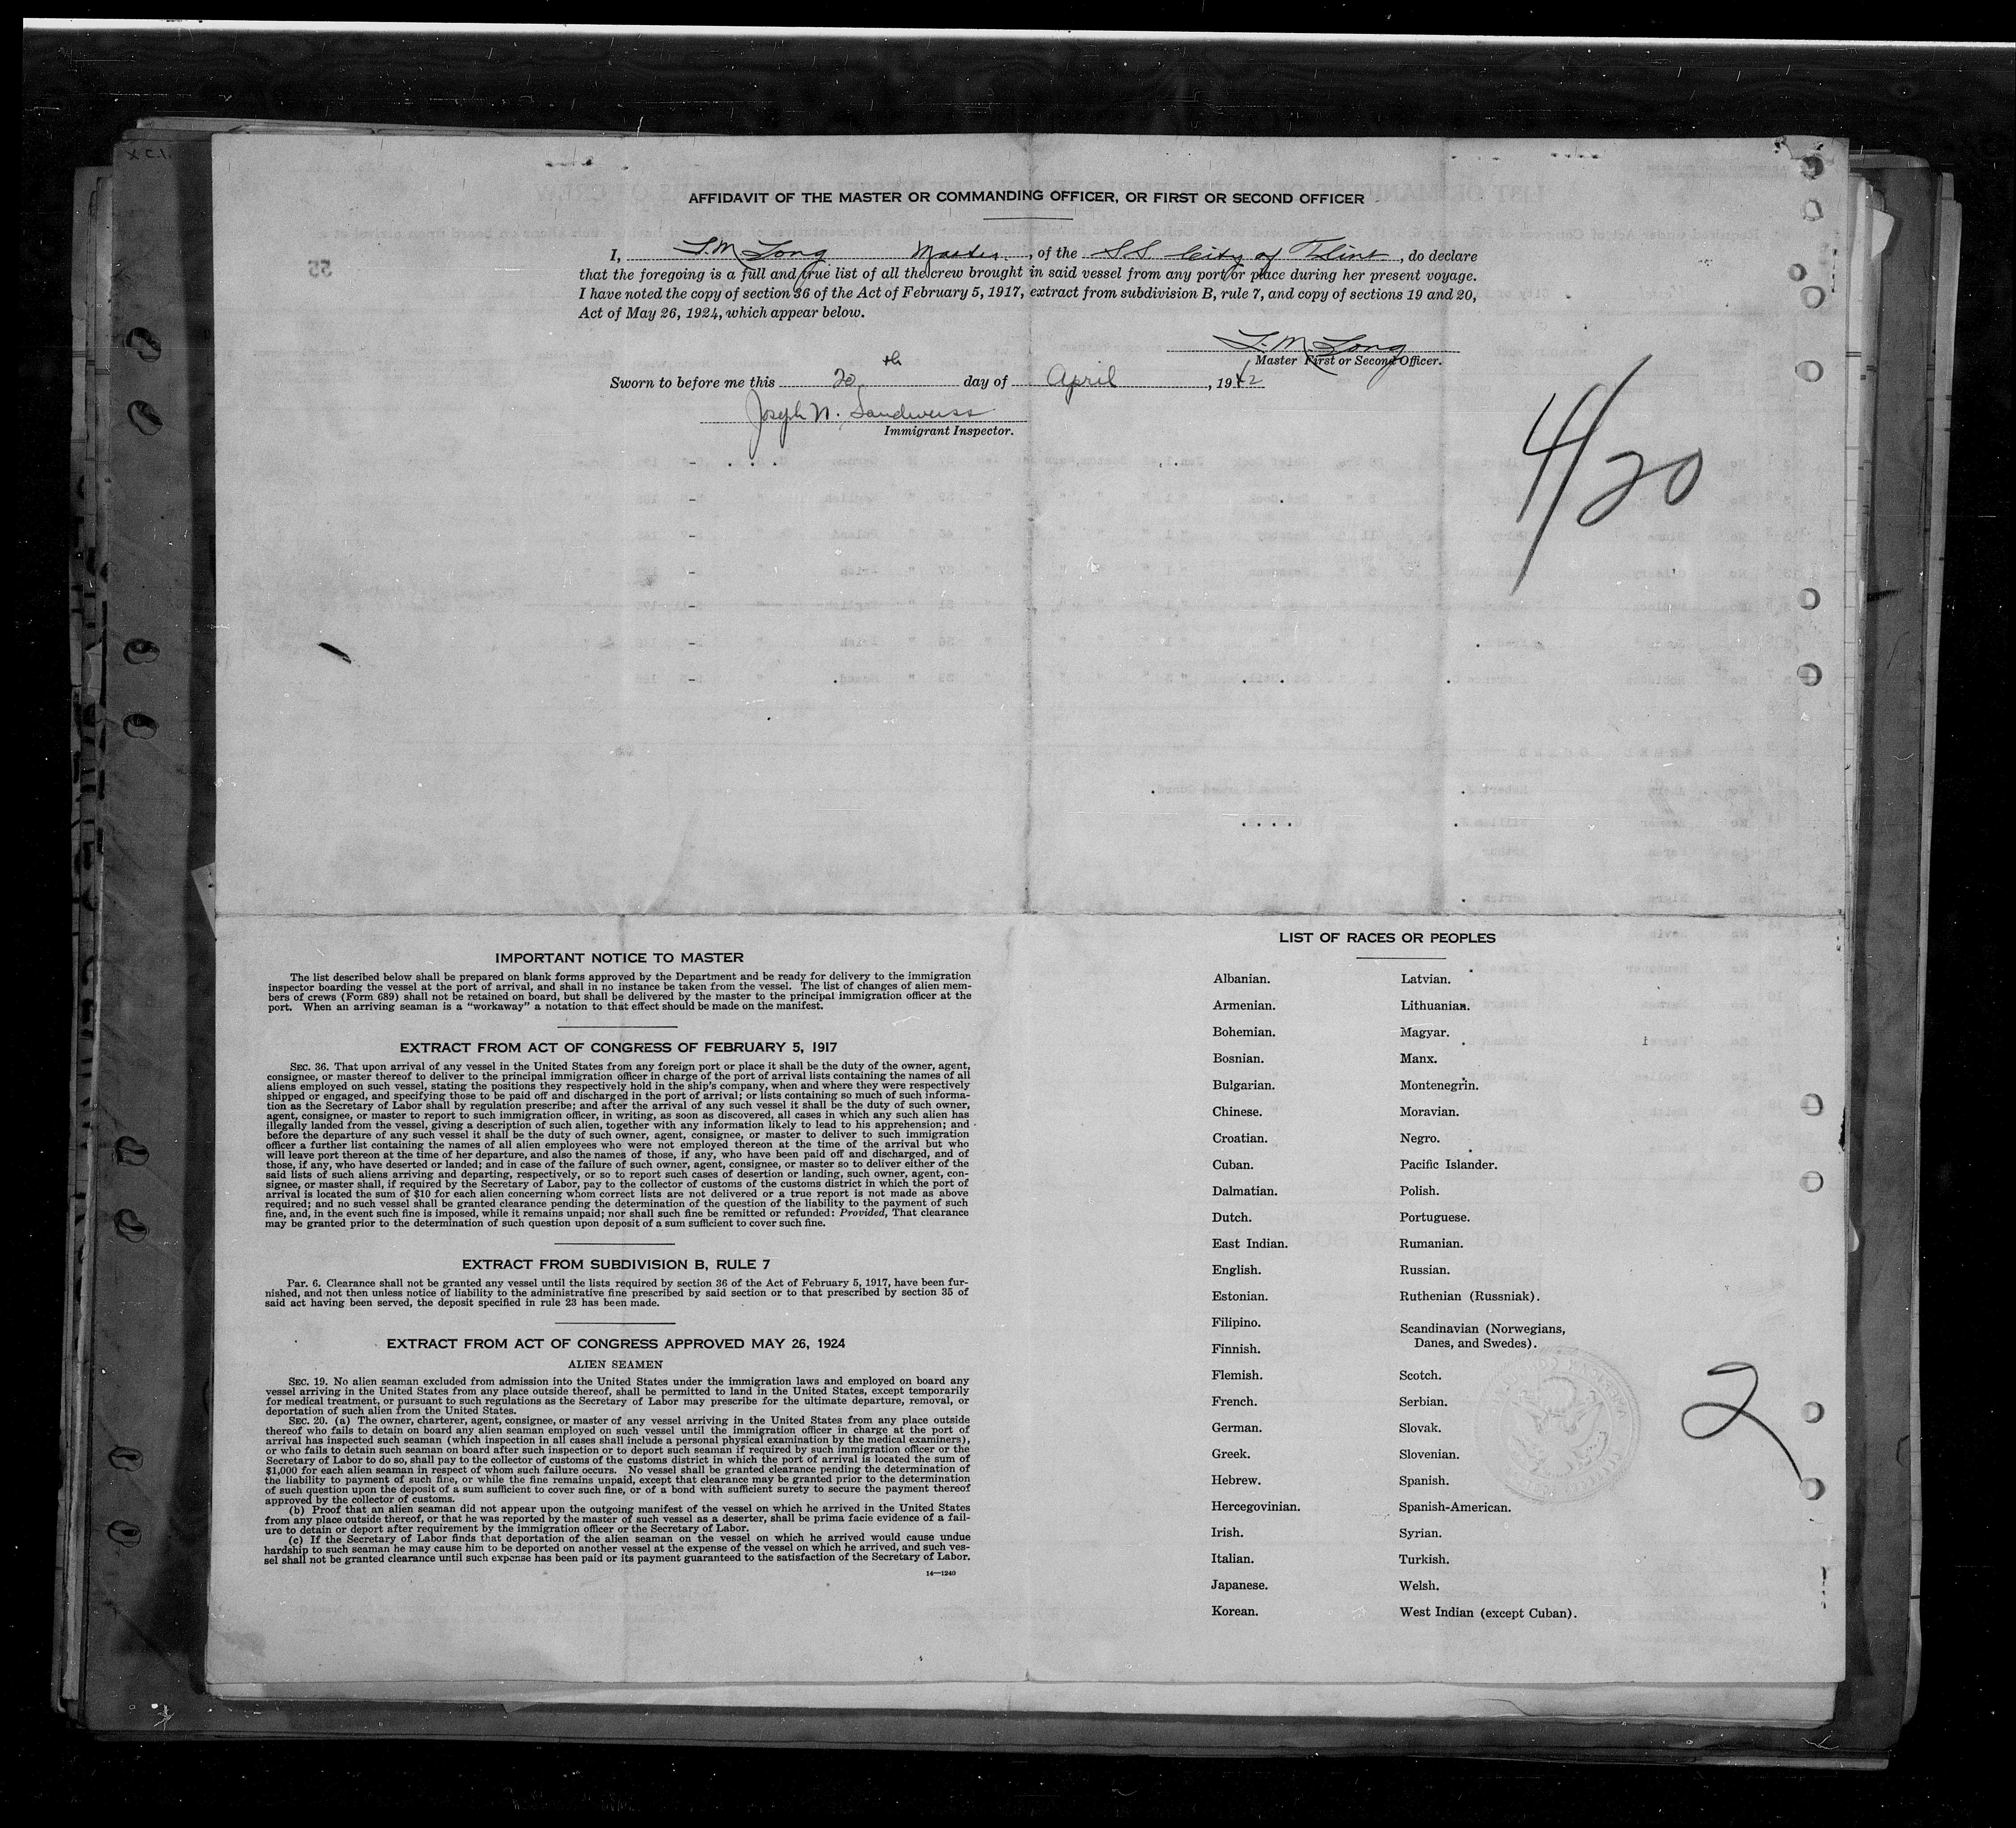 X.C.1.
AFFIDAVIT OF THE MASTER OR COMMANDING OFFICER, OR FIRST OR SECOND OFFICER
I, L.M. Long Master, of the S.S. City of Flint, do declare
that the foregoing is a full and true list of all the crew brought in said vessel from any port or place during her present voyage.
I have noted the copy of section 36 of the Act of February 5, 1917, extract from subdivision B, rule 7, and copy of sections 19 and 20,
Act of May 26, 1924, which appear below.
L. M. Long
Master First or Second Officer.
Sworn to before me this 20th day of April, 1942
Joseph N. Sandweiss
Immigrant Inspector.
4/20
IMPORTANT NOTICE TO MASTER
The list described below shall be prepared on blank forms approved by the Department and be ready for delivery to the immigration
inspector boarding the vessel at the port of arrival, and shall in no instance be taken from the vessel. The list of changes of alien mem-
bers of crews (Form 689) shall not be retained on board, but shall be delivered by the master to the principal immigration officer at the
port. When an arriving seaman is a "workaway" a notation to that effect should be made on the manifest.
EXTRACT FROM ACT OF CONGRESS OF FEBRUARY 5, 1917
SEC. 36. That upon arrival of any vessel in the United States from any foreign port or place it shall be the duty of the owner, agent,
consignee, or master thereof to deliver to the principal immigration officer in charge of the port of arrival lists containing the names of all
aliens employed on such vessel, stating the positions they respectively hold in the ship's company, when and where they were respectively
shipped or engaged, and specifying those to be paid off and discharged in the port of arrival; or lists containing so much of such informa-
tion as the Secretary of Labor shall by regulation prescribe; and after the arrival of any such vessel it shall be the duty of such owner,
agent, consignee, or master to report to such immigration officer, in writing, as soon as discovered, all cases in which any such alien has
illegally landed from the vessel, giving a description of such alien, together with any information likely to lead to his apprehension; and
before the departure of any such vessel it shall be the duty of such owner, agent, consignee, or master to deliver to such immigration
officer a further list containing the names of all alien employees who were not employed thereon at the time of the arrival but who
will leave port thereon at the time of her departure, and also the names of those, if any, who have been paid off and discharged, and of
those, if any, who have deserted or landed; and in case of the failure of such owner, agent, consignee, or master so to deliver either of the
said lists of such aliens arriving and departing, respectively, or so to report such cases of desertion or landing, such owner, agent, con-
signee, or master shall, if required by the Secretary of Labor, pay to the collector of customs of the customs district in which the port of
arrival is located the sum of $10 for each alien concerning whom correct lists are not delivered or a true report is not made as above
required; and no such vessel shall be granted clearance pending the determination of the question of the liability to the payment of such
fine, and, in the event such fine is imposed, while it remains unpaid; nor shall such fine be remitted or refunded: Provided, That clearance
may be granted prior to the determination of such question upon deposit of a sum sufficient to cover such fine.
EXTRACT FROM SUBDIVISION B, RULE 7
Par. 6. Clearance shall not be granted any vessel until the lists required by section 36 of the Act of February 5, 1917, have been fur-
nished, and not then unless notice of liability to the administrative fine prescribed by said section or to that prescribed by section 35 of
said act having been served, the deposit specified in rule 23 has been made.
EXTRACT FROM ACT OF CONGRESS APPROVED MAY 26, 1924
ALIEN SEAMEN
SEC. 19. No alien seaman excluded from admission into the United States under the immigration laws and employed on board any
vessel arriving in the United States from any place outside thereof, shall be permitted to land in the United States, except temporarily
for medical treatment, or pursuant to such regulations as the Secretary of Labor may prescribe for the ultimate departure, removal, or
deportation of such alien from the United States.
SEC. 20. (a) The owner, charterer, agent, consignee, or master of any vessel arriving in the United States from any place outside
thereof who fails to detain on board any alien seaman employed on such vessel until the immigration officer in charge at the port of
arrival has inspected such seaman (which inspection in all cases shall include a personal physical examination by the medical examiners),
or who fails to detain such seaman on board after such inspection or to deport such seaman if required by such immigration officer or the
Secretary of Labor to do so, shall pay to the collector of customs of the customs district in which the port of arrival is located the sum of
$1,000 for each alien seaman in respect of whom such failure occurs. No vessel shall be granted clearance pending the determination of
the liability to payment of such fine, or while the fine remains unpaid, except that clearance may be granted prior to the determination
of such question upon the deposit of a sum sufficient to cover such fine, or of a bond with sufficient surety to secure the payment thereof
approved by the collector of customs.
(b) Proof that an alien seaman did not appear upon the outgoing manifest of the vessel on which he arrived in the United States
from any place outside thereof, or that he was reported by the master of such vessel as a deserter, shall be prima facie evidence of a fail-
ure to detain or deport after requirement by the immigration officer or the Secretary of Labor.
(c) If the Secretary of Labor finds that deportation of the alien seaman on the vessel on which he arrived would cause undue
hardship to such seaman he may cause him to be deported on another vessel at the expense of the vessel on which he arrived, and such ves-
sel shall not be granted clearance until such expense has been paid or its payment guaranteed to the satisfaction of the Secretary of Labor.
14—1240
LIST OF RACES OR PEOPLES
Albanian.
Armenian.
Bohemian.
Bosnian.
Bulgarian.
Chinese.
Croatian.
Cuban.
Dalmatian.
Dutch.
East Indian.
English.
Estonian.
Filipino.
Finnish.
Flemish.
French.
German.
Greek.
Hebrew.
Hercegovinian.
Irish.
Italian.
Japanese.
Korean.
Latvian.
Lithuanian.
Magyar.
Manx.
Montenegrin.
Moravian.
Negro.
Pacific Islander.
Polish.
Portuguese.
Rumanian.
Russian.
Ruthenian (Russniak).
Scandinavian (Norwegians,
Danes, and Swedes).
Scotch.
Serbian.
Slovak.
Slovenian.
Spanish.
Spanish-American.
Syrian.
Turkish.
Welsh.
West Indian (except Cuban).
2